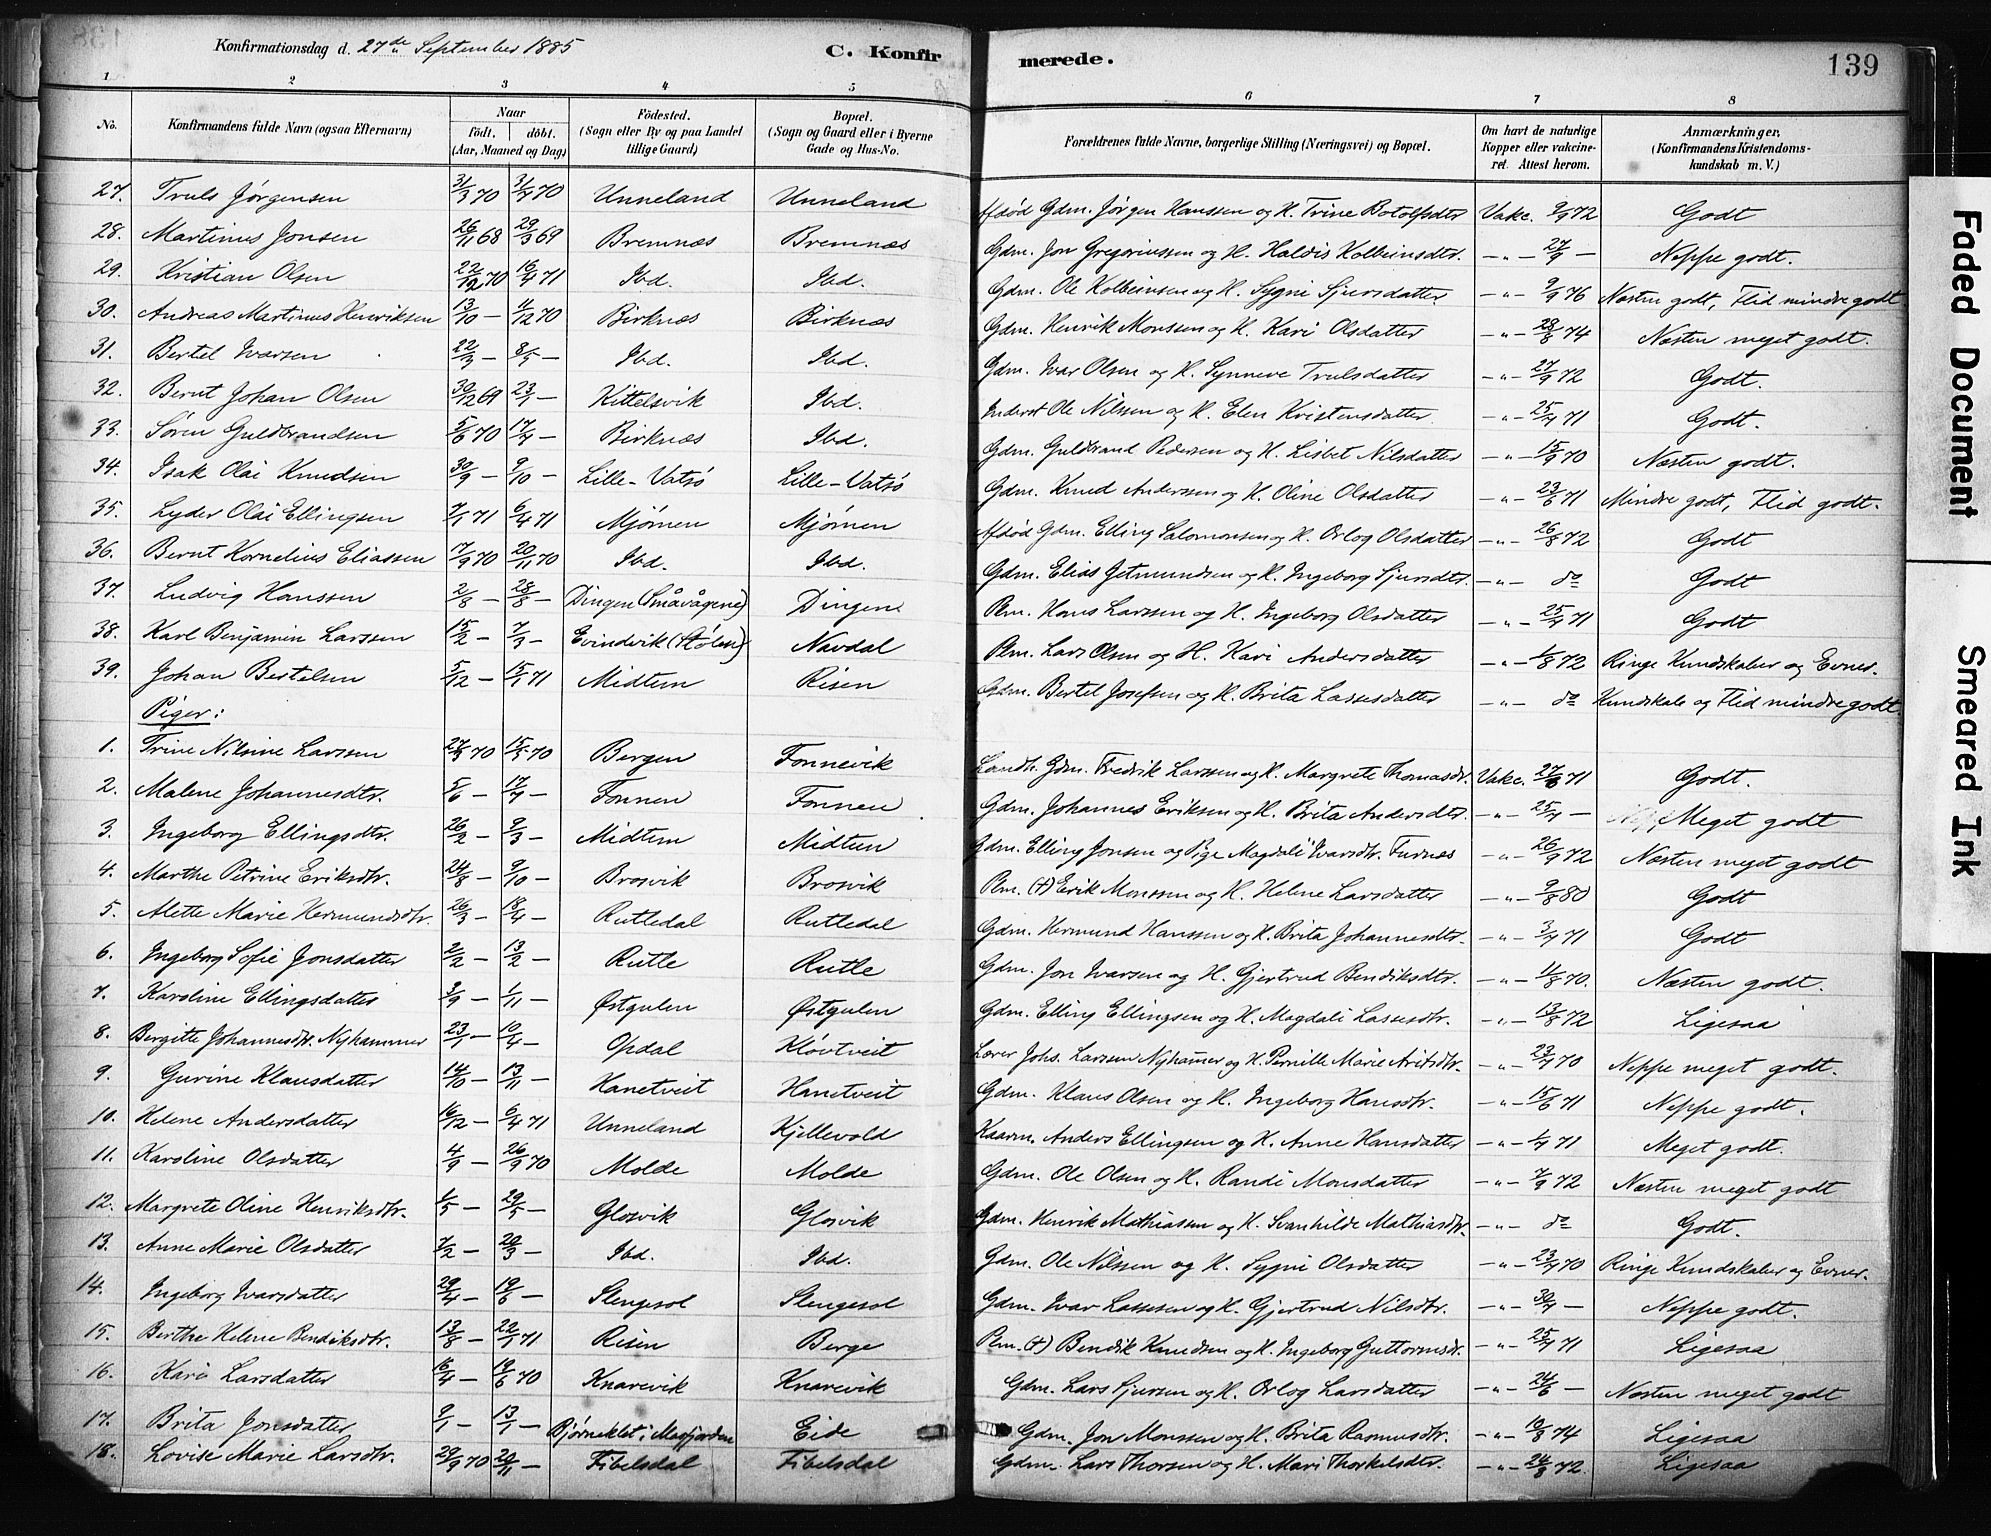 Konfirmationsdag d. 27de September 1885 C. Konfirmerede. 139
1 2 3 4 5 6 7 8
No. Konfirmandens fulde Navn (ogsaa Efternavn) Naar født, døbt. (Aar, Maaned og Dag) Fødested. (Sogn eller By og paa Landet tillige Gaard) Bopæl. (Sogn og Gaard eller i Byerne Gade og Hus-No. Forældrenes fulde Navne, borgerlige Stilling (Næringsvei) og Bopæl. Om havt de naturlige Kopper eller vakcineret. Attest herom. Anmærkninger, (Konfirmandens Kristendomskundskab m. V.)
27. Truls Jørgensen 31/3 70 31/7 70 Unneland Unneland Afdød Gdm. Jørgen Hanssen og H. Trine Botolfsdtr Vakc. 9/9 72 Godt
28. Martinus Jonsen 26/11 68 29/3 69 Bremnæs Bremnæs Gdm. Jon Gregoriussen og H. Haldis Kolbeinsdtr. -"- 27/9 - Neppe godt.
29. Kristian Olsen 22/12 70 16/4 71 Ibd. Ibd. Gdm. Ole Kolbeinsen og H. Sygni Sjursdatter -"- 9/9 76 Næsten godt, Flid mindre godt
30. Andreas Martinus Henriksen 13/10 - 11/12 70 Birknæs Birknæs Gdm. Henrik Monssen og H. Kari Olsdatter -"- 28/8 74 Næsten meget godt.
31. Bertel Ivarsen 22/3 - 8/5 - Ibd. Ibd. Gdm. Ivar Olsen og H. Synneve Trulsdatter -"- 27/9 72 Godt.
32. Bernt Johan Olsen 30/12 69 23/1 - Kittelsvik Ibd. Inderst Ole Nilssen og H. Elen Kristensdatter -"- 25/7 71 Godt.
33. Søren Guldbrandsen 5/6 70 17/7 - Birknæs Ibd. Gdm. Guldbrand Pedersen og H. Lisbet Nilsdatter -"- 15/9 70 Næsten godt.
34. Isak Olai Knudsen 30/9 - 9/10 - Lille-Vatsø Lille-Vatsø Gdm. Knud Anderssen og H. Oline Olsdatter -"- 23/6 71 Mindre godt, Flid godt.
35. Lyder Olai Ellingsen 7/1 71 6/4 71 Mjømen Mjømen Afdød Gdm. Elling Salomonsen og H. Orlog Olsdatter -"- 26/8 72 Godt
36. Bernt Kornelius Eliassen 17/9 70 20/11 70 Ibd. Ibd. Gdm. Elias Jetmundsen og H. Ingeborg Sjursdtr. -"- do Godt
37. Ludvig Hanssen 2/8 - 28/8 - Dingen (Småvågene) Dingen Plm. Hans Larssen og H. Ingeborg Olsdatter -"- 25/7 71 Godt
38. Karl Benjamin Larssen 15/2 - 7/3 - Evindvik (Stølen) Navdal Plm. Lars Olsen og H. Kari Andersdatter -"- 1/8 72 Ringe Kundskaber og Evner.
39. Johan Bertelsen 5/12 - 15/1 71 Midtun Risen Gdm. Bertel Josefsen og H. Brita Lassesdatter -"- do Kundskab og Flid mindre godt.
Piger:
1. Trine Nilsine Larssen 27/3 70 15/5 70 Bergen Fonnevik Landh. Gdm. Fredrik Larssen og H. Margrete Thomasdtr. Vakc. 27/6 71 Godt.
2. Malene Johannesdtr. 5/6 - 17/7 - Fonnen Fonnen Gdm. Johannes Eriksen og H. Brita Andersdtr. -"- 25/7 - Meget godt
3. Ingeborg Ellingsdtr. 26/2 - 9/3 - Midtun Midtun Gdm. Elling Jonsen og Pige Magdali Ivarsdtr. Furnæs -"- 26/9 72 Næsten meget godt
4. Marthe Petrine Eriksdtr. 24/8 - 9/10 - Brosvik Brosvik Plm. (+) Erik Monssen og H. Helene Larsdatter -"- 9/8 80 Godt
5. Alette Marie Hermundsdtr. 26/3 - 18/4 - Rutledal Rutledal Gdm. Hermund Hanssen og H. Brita Johannesdtr. -"- 3/7 71 Godt
6. Ingeborg Sofie Jonsdatter 2/2 - 13/2 - Rutle Rutle Gdm. Jon Ivarsen og H. Gjertrud Bendiksdtr. -"- 11/8 70. Næsten godt.
7. Karoline Ellingsdatter 3/9 - 1/11 - Østgulen Østgulen Gdm. Elling Ellingsen og H. Magdali Lassesdtr. -"- 13/8 72 Ligesaa
8. Bergitte Johannesdtr. Nyhammer 23/1 - 10/4 - Opdal Kløvtveit Lærer Johs. Larssen Nyhamer og H. Pernille Marie Arildsdtr. -"- 23/7 70 Neppe meget godt.
9. Gurine Klausdatter 14/10 - 13/11 - Hanetveit Hanetveit Gdm. Klaus Olsen og H. Ingeborg Hansdtr. -"- 15/6 71 Neppe godt.
10. Helene Andersdatter 16/12 - 6/4 71 Unneland Kjellevold Kaarm. Anders Ellingsen og H. Anne Hansdatter -"- 1/7 71 Meget godt.
11. Karoline Olsdatter 4/9 - 26/9 70 Molde Molde Gdm. Ole Olsen og H. Randi Monsdatter -"- 7/9 72 Næsten meget godt
12. Margrete Oline Henriksdtr. 1/5 - 29/5 - Glosvik Glosvik Gdm. Henrik Mathiassen og H. Svanhilde Mathiasdtr. -"- do Godt.
13. Anne Marie Olsdatter 7/2 - 20/3 - Ibd. Ibd. Gdm. Ole Nilssen og H. Sygni Olsdatter -"- 23/7 70 Ringe Kundskaber og Evner.
14. Ingeborg Ivarsdatter 29/4 - 19/6 - Slengesol Slengesol Gdm. Ivar Lassesen og H. Gjertrud Nilsdtr. -"- 30/7 - Neppe godt.
15. Berthe Helene Bendiksdtr. 13/8 - 22/1 71 Risen Berge Plm. (+) Bendik Knudsen og H. Ingeborg Guttormsdtr. -"- 25/7 71 Ligesaa
16. Kari Larsdatter 16/4 - 19/6 70 Knarevik Knarevik Gdm. Lars Sjursen og H. Orlog Larsdatter -"- 24/6 - Næsten meget godt
17. Brita Jonsdatter 9/1 - 13/1 - Bjørneklet i Masfjorden Eide Gdm. Jon Monssen og H. Brita Rasmusdtr. -"- 10/8 74 Ligesaa
18. Lovise Marie Larsdtr. 29/9 70 20/11 - Fibelsdal Fibelsdal Gdm. Lars Thorsen og H. Mari Thorkelsdtr. -"- 24/8 72. Ligesaa
Faded Document
Smeared Ink